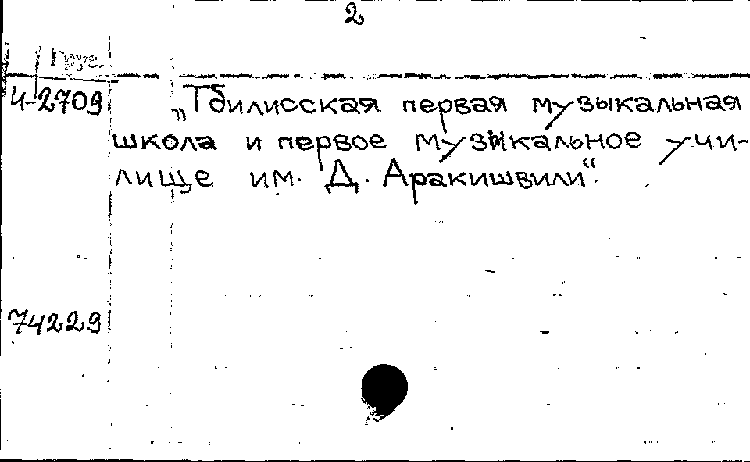 2
Груз.
И-2709 „Тбилисская первая музыкальная
школа и первое музыкальное учи-
лище им. Д. Аракишвили“.
74229